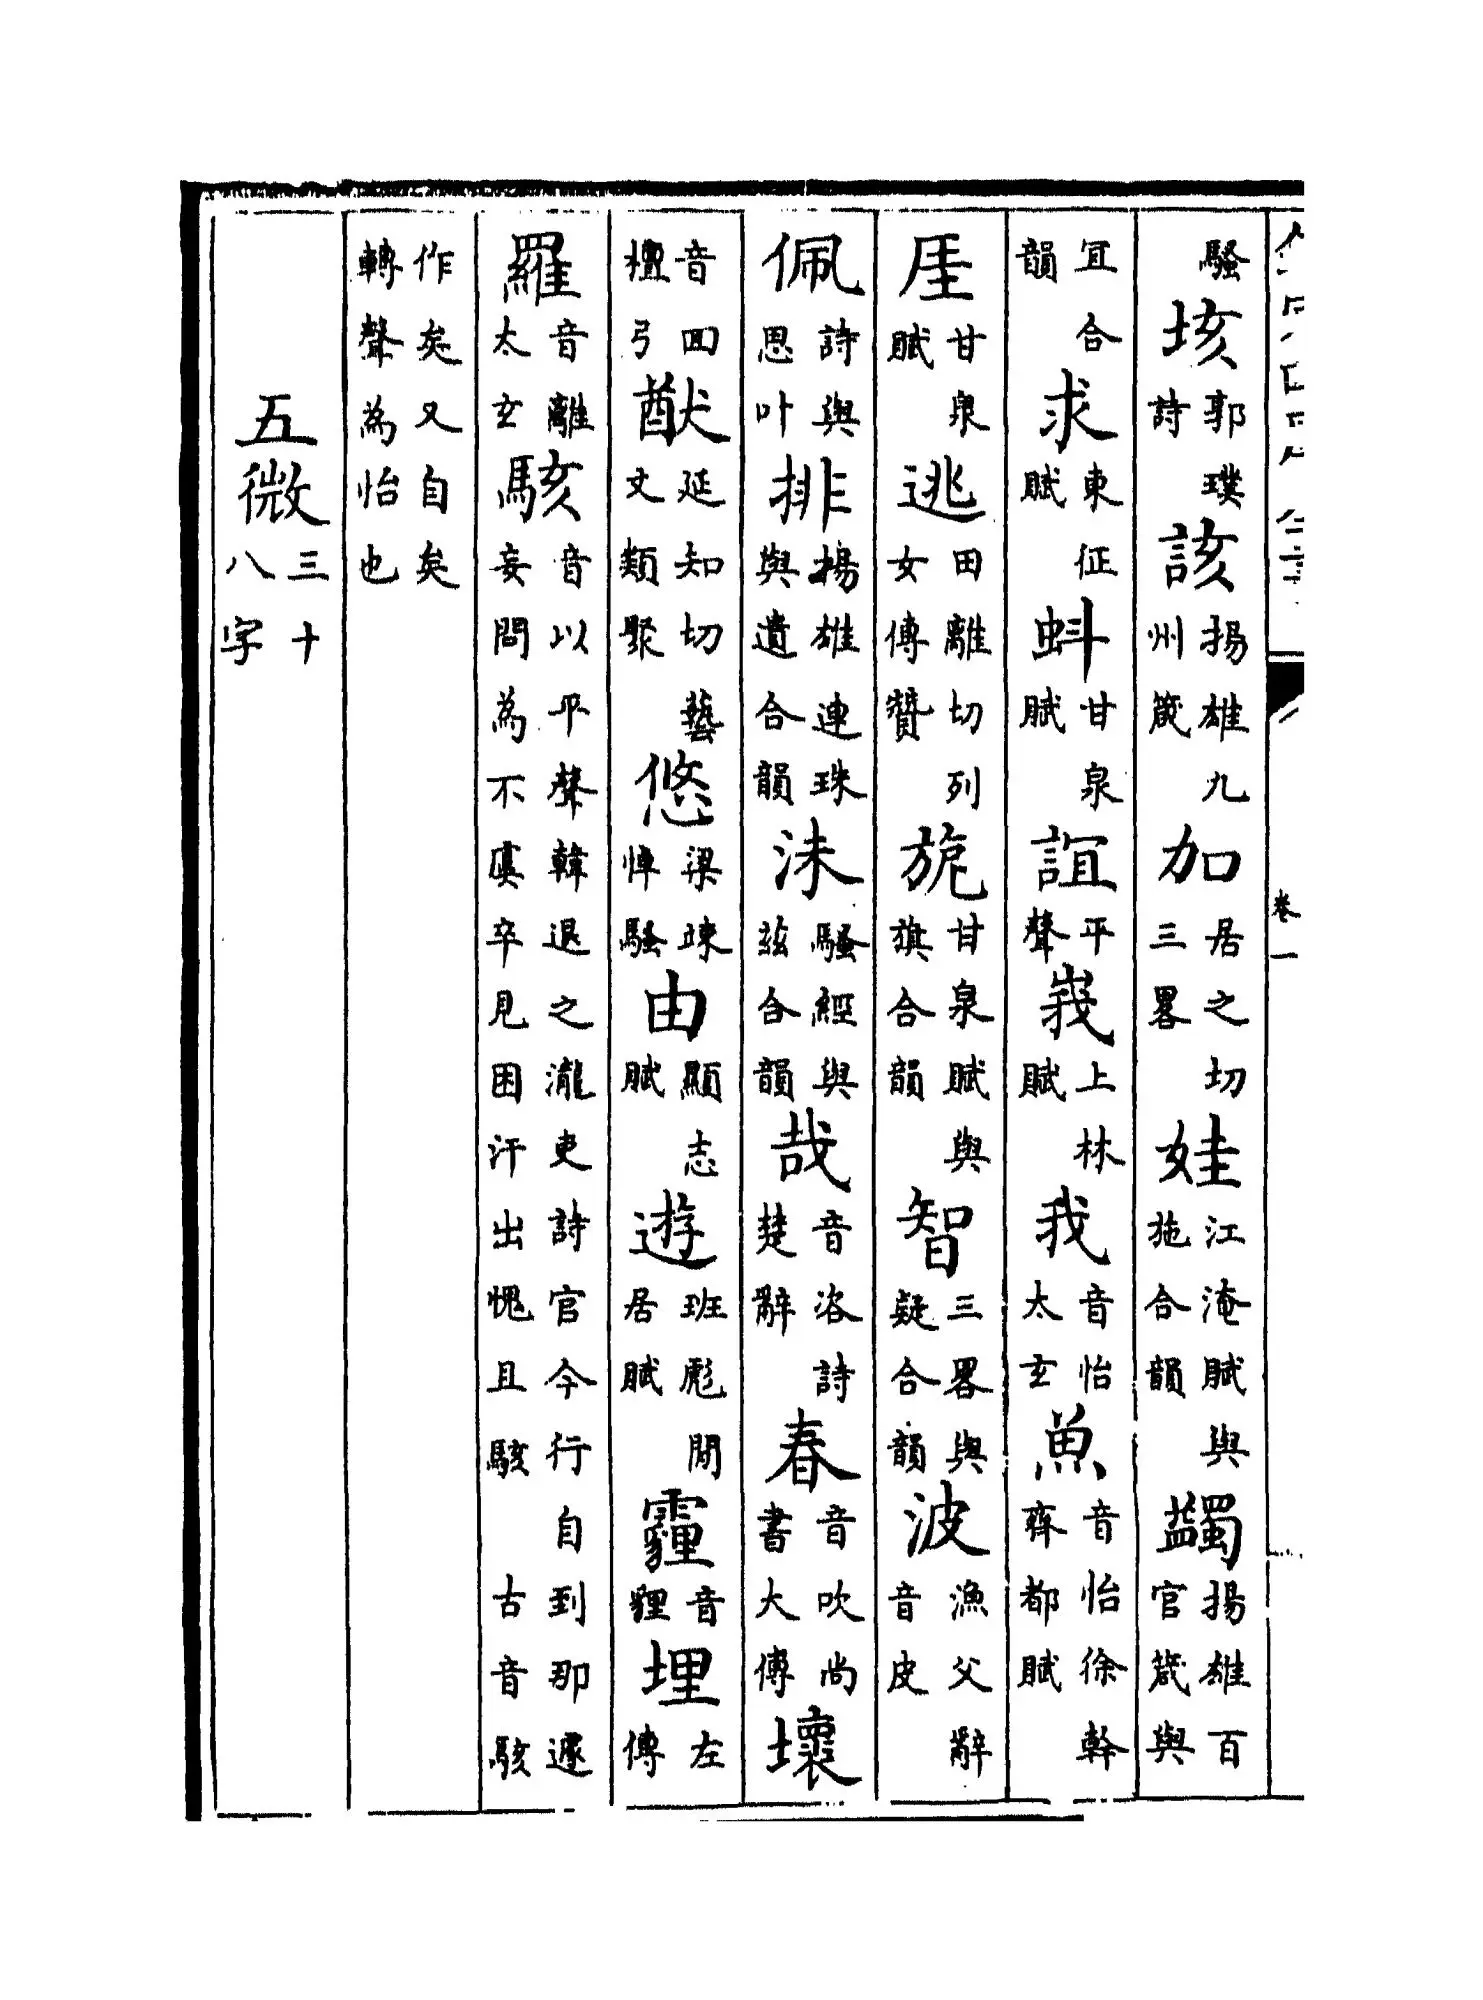 騷垓郭璞詩該揚雄九州箴加居之切三畧娃江淹賦與施合韻蠲揚雄百官箴與
宜合韻求東征賦蚪甘泉賦誼平聲峩上林賦我音怡太玄魚音怡徐幹齊都賦
厓甘泉賦逃田離切列女傳贊旎甘泉賦與旗合韻智三畧與疑合韻波漁父辭音皮
佩詩與思叶排揚雄連珠與遺合韻沬騷經與玆合韻哉音咨詩楚辭春音吹尚書大傳壞
音回檀弓猷延知切藝文類聚悠梁竦悼騷由顯志賦遊班彪閒居賦霾音貍埋左傳
羅音離太玄駭音以平聲韓退之瀧吏詩官今行自到那遽妄問為不虞卒見困汗出愧且駭古音駭
作矣又自矣轉聲為怡也
五微三十八字
卷一